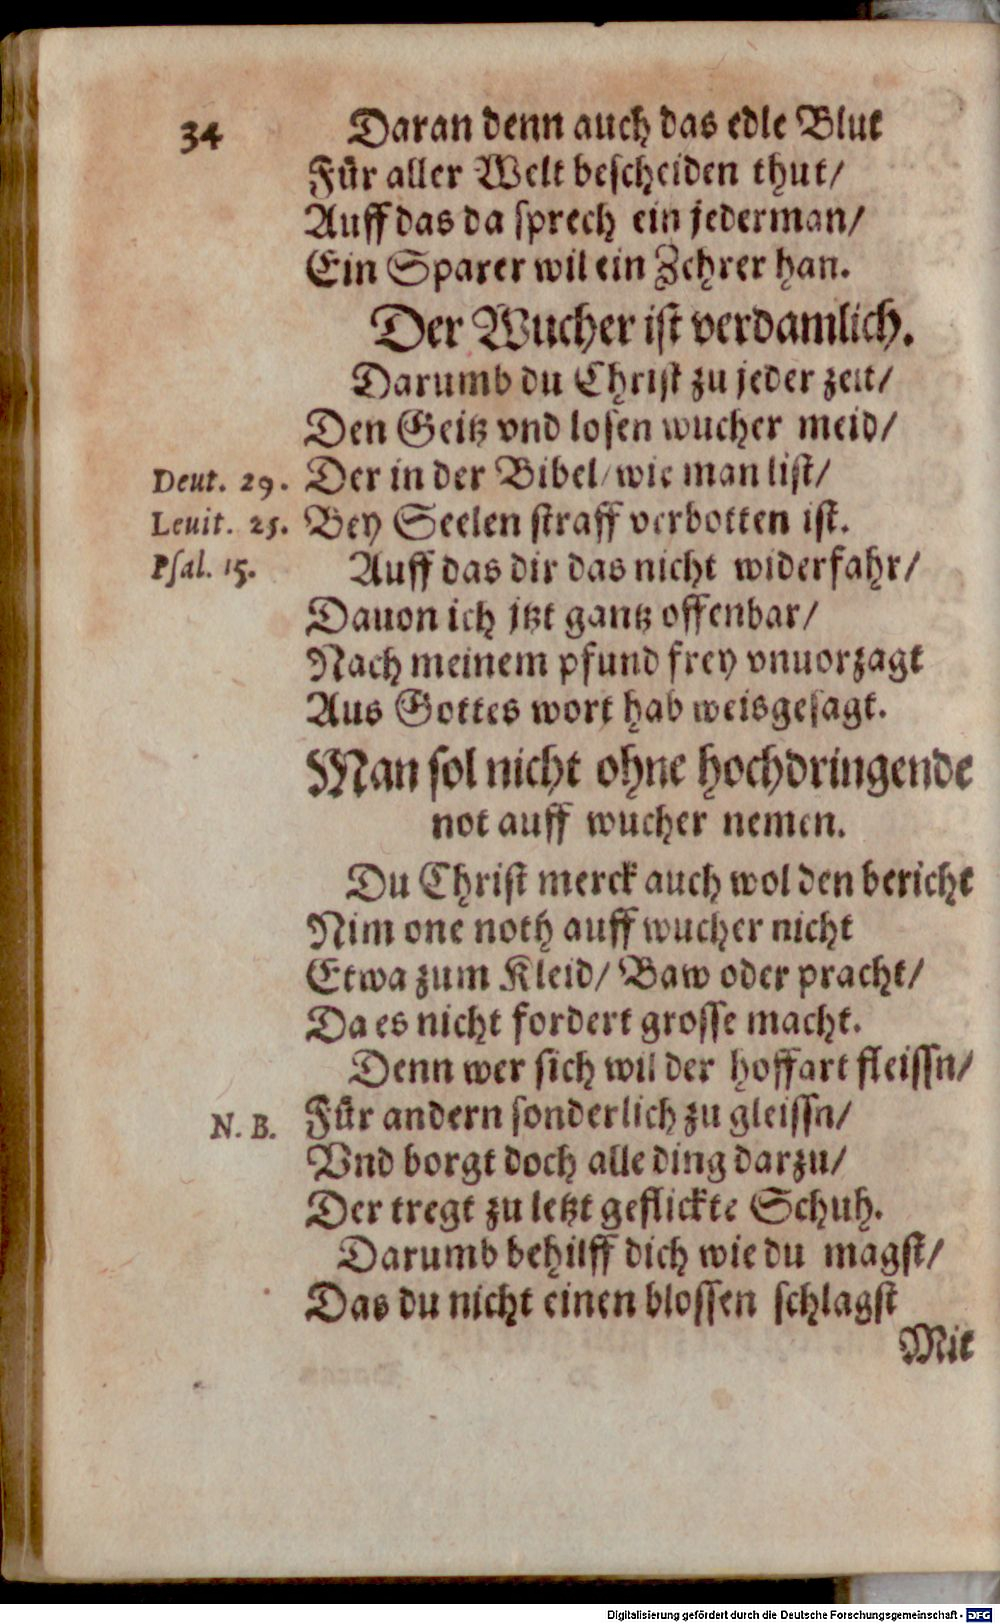 34
Daran denn auch das edle Blut
Für aller Welt bescheiden thut/
Auff das da sprech ein jederman/
Ein Sparer wil ein Zehrer han.
Der Wucher ist verdamlich.
Darumb du Christ zu jeder zeit/
Den Geitz vnd losen wucher meid/
Deut. 29. Der in der Bibel/ wie man list/
Leuit. 25. Bey Seelen straff verbotten ist.
Psal. 15. Auff das dir das nicht widerfahr/
Dauon ich jtzt gantz offenbar/
Nach meinem pfund frey vnuorzagt
Aus Gottes wort hab weisgesagt.
Man sol nicht ohne hochdringende
not auff wucher nemen.
Du Christ merck auch wol den bericht
Nim one noth auff wucher nicht
Etwa zum Kleid/ Baw oder pracht/
Da es nicht fordert grosse macht.
Denn wer sich wil der hoffart fleissn/
N. B. Für andern sonderlich zu gleissn/
Vnd borgt doch alle ding darzu/
Der tregt zu letzt geflickte Schuh.
Darumb behilff dich wie du magst/
Das du nicht einen blossen schlagst
Mit
Digitalisierung gefördert durch die Deutsche Forschungsgemeinschaft - DFG